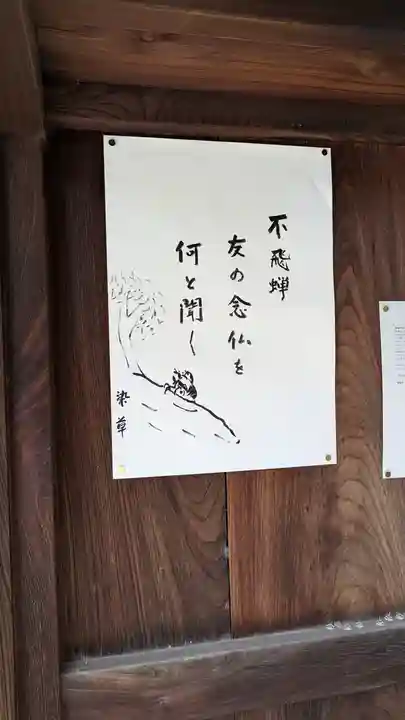 不飛蝉
友の念仏を
何と聞く
染草